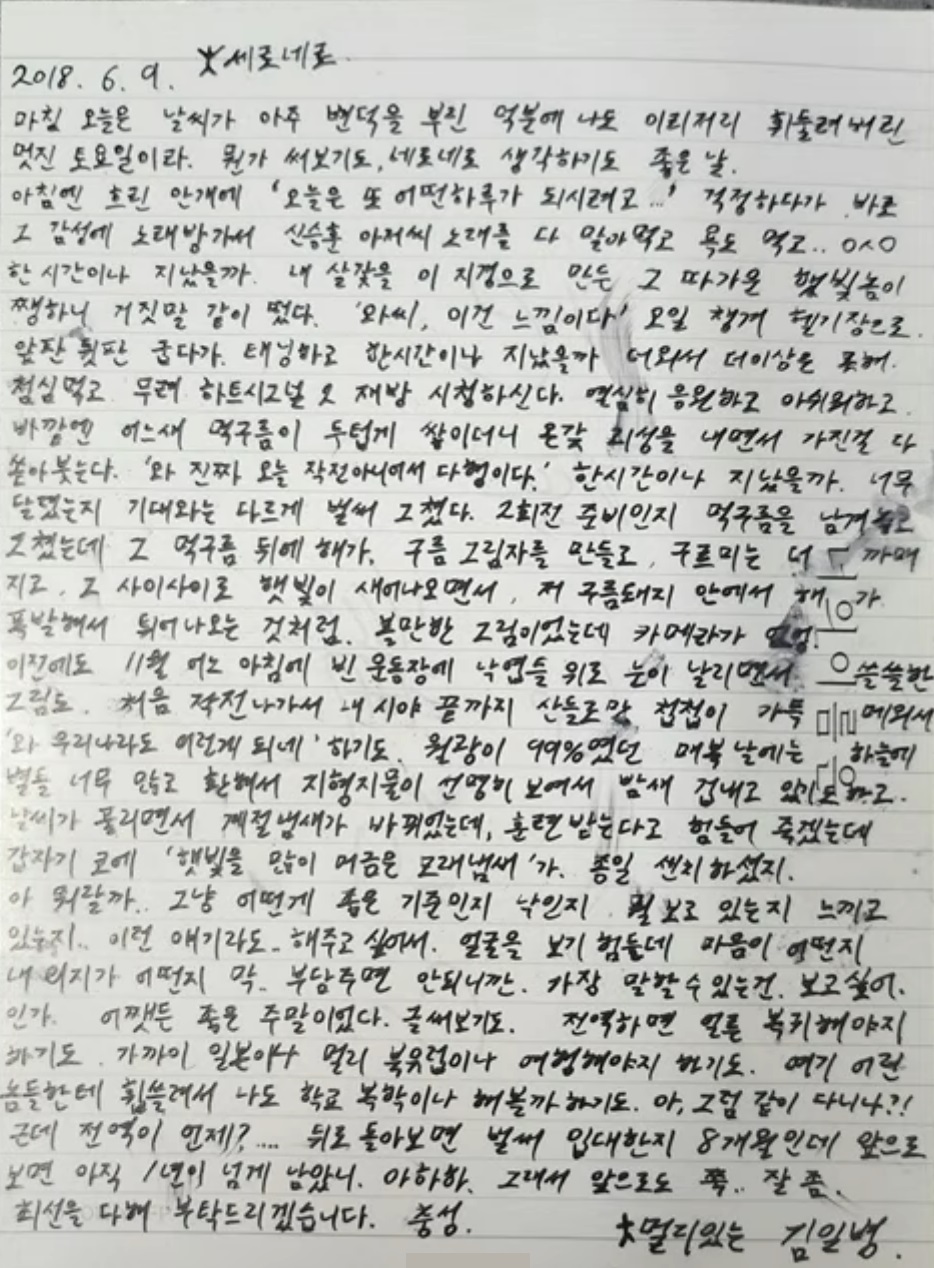 2018. 6. 9. 세로네로.
마침 오늘은 날씨가 아주 변덕을 부린 덕분에 나도 이리저리 휘둘려버린
멋진 토요일이라. 뭔가 써보기도, 네로네로 생각하기도 좋은 날.
아침엔 흐린 안개에 '오늘은 또 어떤하루가 되시려고...' 걱정하다가 바로
그 감성에 노래방가서 신승훈 아저씨 노래를 다 말아먹고 욕도 먹고.. ㅇㅅㅇ
한시간이나 지났을까. 내 살갗을 이 지경으로 만든 그 따가운 햇빛놈이
쨍하니 거짓말 같이 떴다. '와씨, 이건 느낌이다' 오일 챙겨 헬기장으로.
앞판 뒷판 굽다가. 태닝하고 한시간이나 지났을까 더워서 더이상은 못해.
점심먹고 무려 하트시그널 오 재방 시청하신다. 열심히 응원하고 아쉬워하고.
바깥엔 어느새 먹구름이 두텁게 쌓이더니 온갖 괴성을 내면서 가진걸 다
쏟아붓는다. '와 진짜 오늘 작전아니어서 다행이다.' 한시간이나 지났을까. 너무
달렸는지 기대와는 다르게 벌써 그쳤다. 2회전 준비인지 먹구름을 남겨놓고
그쳤는데 그 먹구름 뒤에 해가, 구름 그림자를 만들고, 구르미는 더 까매
지고, 그 사이사이로 햇빛이 새어나오면서, 저 구름돼지 안에서 해가
폭발해서 튀어나오는 것처럼. 볼만한 그림이었는데 카메라가
이전에도 11월 어느 아침에 빈 운동장에 낙엽들 위로 눈이 날리면서 쓸쓸한
그림도. 처음 작전나가서 내 시야 끝까지 산들로만 첩첩이 가득 메워서
'와 우리나라도 이렇게 되네' 하기도. 월광이 99%였던 매복 날에는 하늘에
별들 너무 많고 환해서 지형지물이 선명히 보여서 밤새 겁내고 있기도하고.
날씨가 풀리면서 계절냄새가 바뀌었는데, 훈련받는다고 힘들어 죽겠는데
갑자기 코에 '햇빛을 많이 머금은 모래냄새'가. 종일 센치하셨지.
아 뭐랄까.. 그냥 어떤게 좋은 기준인지 낙인지 뭘 보고 있는지 느끼고
있는지.. 이런 얘기라도.. 해주고 싶어서. 얼굴을 보기 힘든데 마음이 어떤지
내 의지가 어떤지 막. 부담주면 안되니깐. 가장 말할 수 있는건. 보고싶어.
인가. 어쨋든 좋은 주말이었다. 글써보기도. 전역하면 얼른 복귀해야지
하기도. 가까이 일본이나 멀리 북유럽이나 여행해야지 하기도. 여기 어린
놈들한테 휩쓸려서 나도 학교 복학이나 해볼까 하기도. 아, 그럼 같이 다니나?!
근데 전역이 언제?.... 뒤로 돌아보면 벌써 입대한지 8개월인데 앞으로
보면 아직 1년이 넘게 남았니. 아하하. 그래서 앞으로도 쭉.. 잘 좀.
최선을 다해 부탁드리겠습니다. 충성.
멀리있는 김일병.